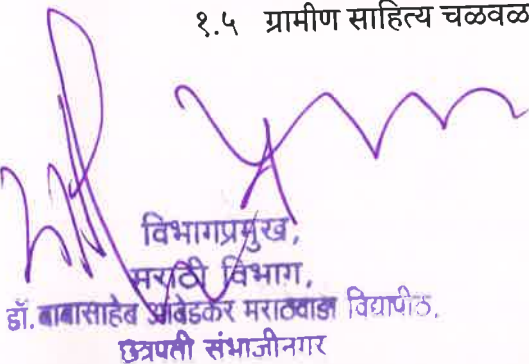 १.५ ग्रामीण साहित्य चळवळ
विभागप्रमुख,
मराठी विभाग,
डॉ. बाबासाहेब आंबेडकर मराठवाडा विद्यापीठ,
छत्रपती संभाजीनगर